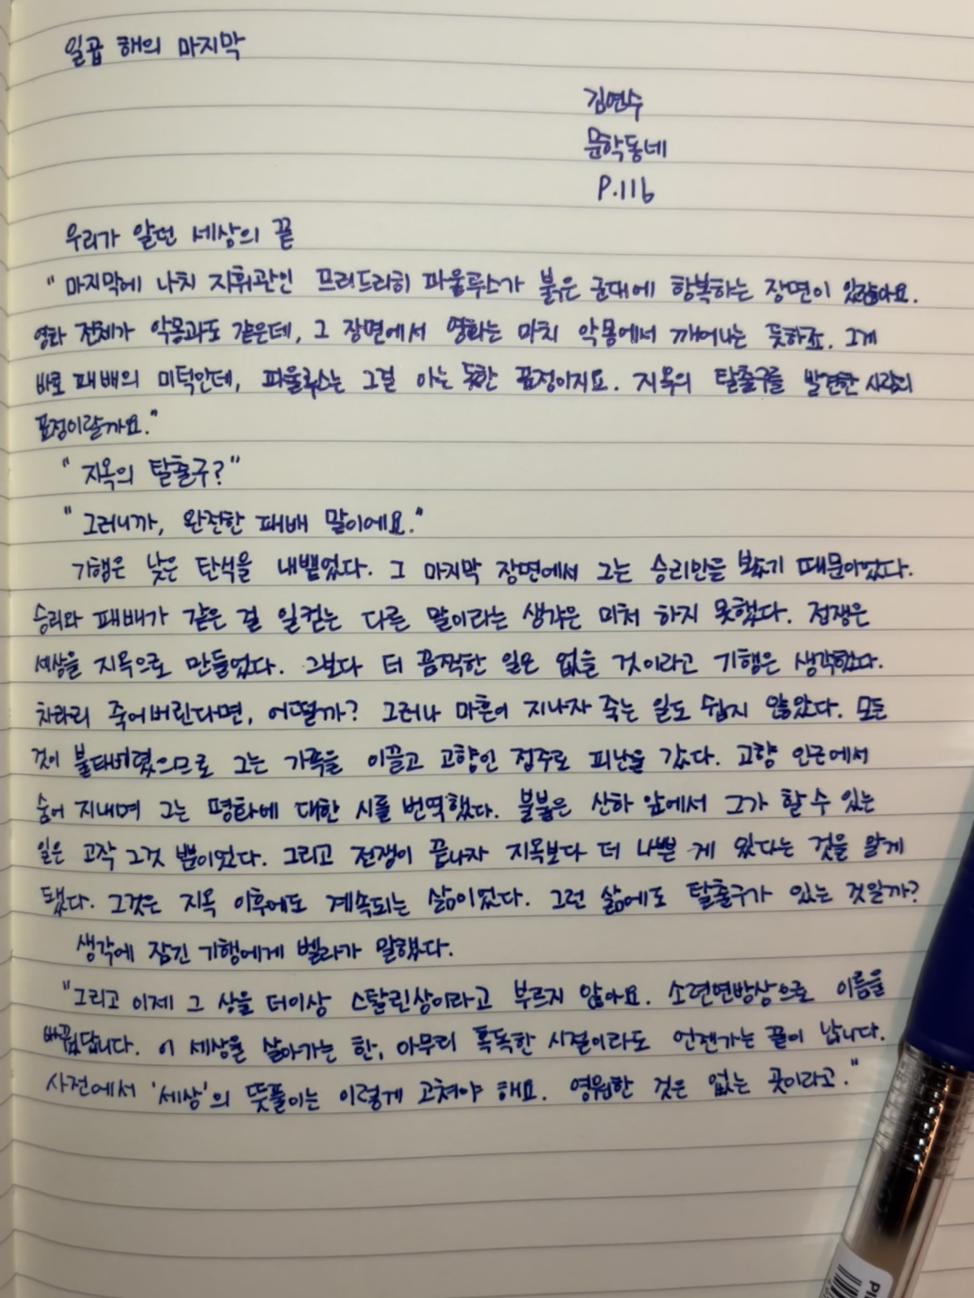 일곱 해의 마지막
김연수
문학동네
P.116
우리가 알던 세상의 끝
"마지막에 나치 지휘관인 프리드리히 파울루스가 붉은 군대에 항복하는 장면이 있잖아요.
영화 전체가 악몽과도 같은데, 그 장면에서 영화는 마치 악몽에서 깨어나는 듯하죠. 그게
바로 패배의 미덕인데, 파울루스는 그걸 아는 듯한 표정이지요. 지옥의 탈출구를 발견한 사람의
표정이랄까요."
"지옥의 탈출구?"
"그러니까, 완전한 패배 말이에요."
기행은 낮은 탄식을 내뱉었다. 그 마지막 장면에서 그는 승리만을 봤기 때문이었다.
승리와 패배가 같은 걸 일컫는 다른 말이라는 생각은 미처 하지 못했다. 전쟁은
세상을 지옥으로 만들었다. 그보다 더 끔찍한 일은 없을 것이라고 기행은 생각했다.
차라리 죽어버린다면, 어떨까? 그러나 마흔이 지나자 죽는 일도 쉽지 않았다. 모든
것이 불타버렸으므로 그는 가족을 이끌고 고향인 정주로 피난을 갔다. 고향 인근에서
숨어 지내며 그는 평화에 대한 시를 번역했다. 불붙은 산하 앞에서 그가 할 수 있는
일은 고작 그것 뿐이었다. 그리고 전쟁이 끝나자 지옥보다 더 나쁜 게 있다는 것을 알게
됐다. 그것은 지옥 이후에도 계속되는 삶이었다. 그런 삶에도 탈출구가 있는 것일까?
생각에 잠긴 기행에게 벨라가 말했다.
"그리고 이제 그 상을 더이상 스탈린상이라고 부르지 않아요. 소련연방상으로 이름을
바꿨답니다. 이 세상을 살아가는 한, 아무리 혹독한 시절이라도 언젠가는 끝이 납니다.
사전에서 '세상'의 뜻풀이는 이렇게 고쳐야 해요. 영원한 것은 없는 곳이라고."